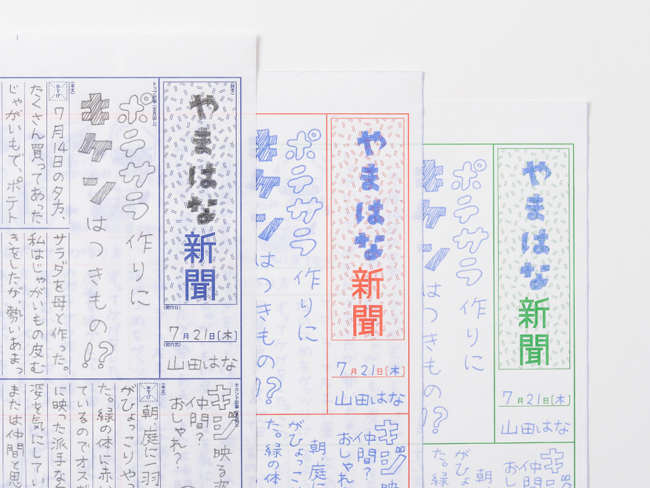 やまはな
新聞
7月21日[木]
山田はな
ポテサラ作りに
キケンはつきもの!?
7月14日の夕方、
たくさん買ってあった
じゃがいもで、ポテト
サラダを母と作った。
私はじゃがいもの皮む
きをしたが、勢いあまっ
キジ映る姿
仲間?
おしゃれ?
朝、庭に一羽
がひょっこりやっ
た。緑の体に赤い
ているのでオスだ
に映った派手な自
姿を気にしてい
または仲間と思
やまはな
新聞
7月21日[木]
山田はな
ポテサラ作りに
キケンはつきもの!?
キジ
仲間?
おしゃれ?
朝、庭に
がひょっ
た。緑の体
やまはな
新聞
7月21日[木]
山田はな
ポテサラ作りに
キケンはつきもの!?
キジ
仲間?
おしゃ
朝
がひょ
た。緑